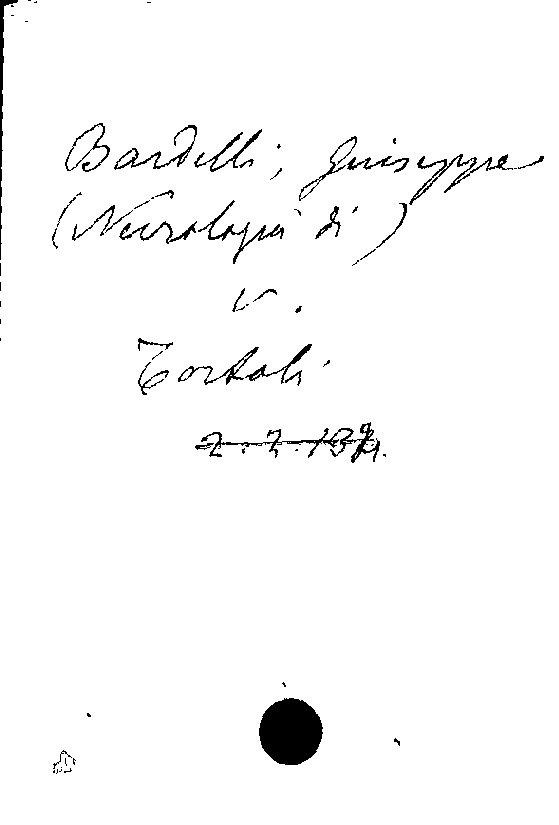 Bardelli, Giuseppe
(Necrologia di)
v.
Tortoli